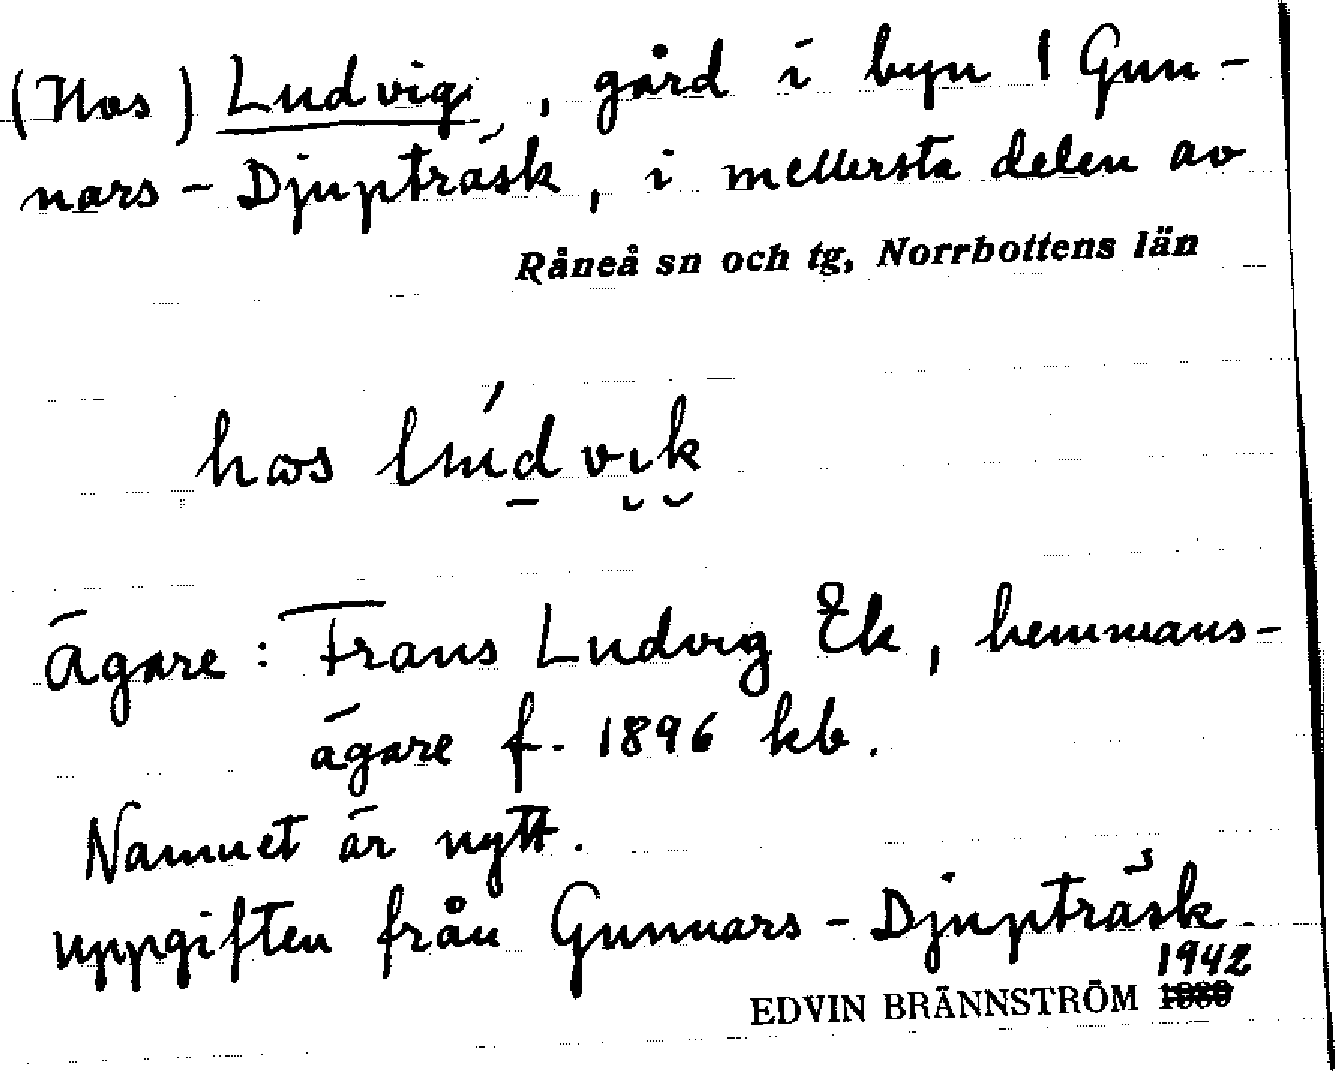 (Hos) Ludvig, gård i byn 1 Gun-
nars-Djupträsk, i mellersta delen av
Råneå sn och tg, Norrbottens län
hos lúdvik
Ägare: Frans Ludvig Ek, hemmans-
ägare f. 1896 kb.
Namnet är nytt.
uppgiften från Gunnars-Djupträsk
1942
EDVIN BRÄNNSTRÖM